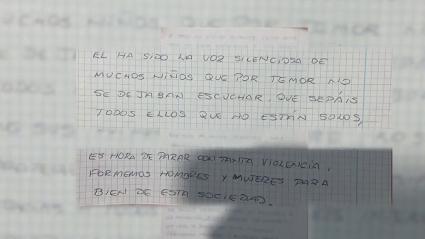 EL HA SIDO LA VOZ SILENCIOSA DE
MUCHOS NIÑOS QUE POR TEMOR NO
SE DEJABAN ESCUCHAR, QUE SEPÁIS
TODOS ELLOS QUE NO ESTÁN SOLOS,
ES HORA DE PARAR CON TANTA VIOLENCIA,
FORMEMOS HOMBRES Y MUJERES PARA
BIEN DE ESTA SOCIEDAD.